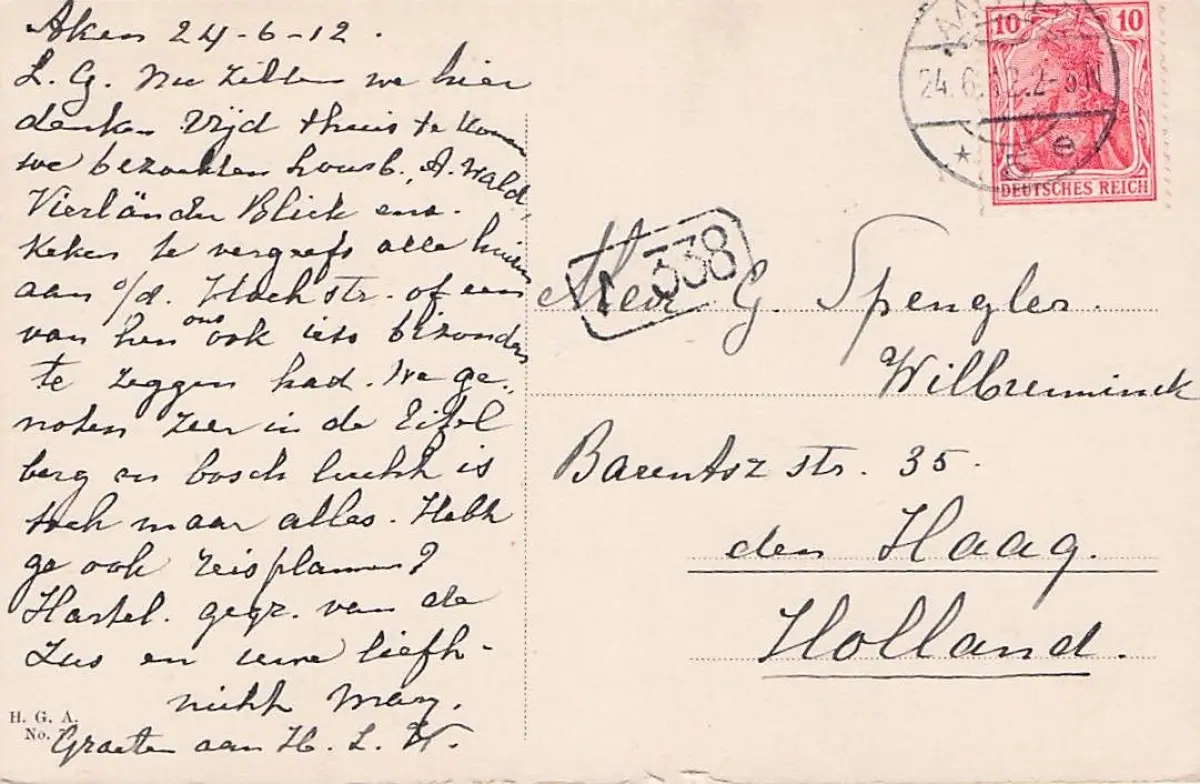 Aken 24-6-12.
L. G. Nu zitten we hier
denken Vrijd thuis te komen
we bezochten housb., A. wald,
Vierländer Blick enz.
Keken te vergeefs alle huizen
aan o/d. Hochstr. of een
van hen ons ook iets bizonders
te zeggen had. We ge-
noten zeer in de Eifel
berg en bosch lucht is
toch maar alles. Hebt
ge ook reisplannen?
Hartel. gegr. van de
Zus en uwe liefh-
nicht Mary.
Groeten aan H. L. W.
H. G. A.
No.
10 10
24.6.12.2-3N
* e
DEUTSCHES REICH
1 338
Mevr G. Spengler.
Wilbreuninck
Barentsz str. 35.
den Haag.
Holland.